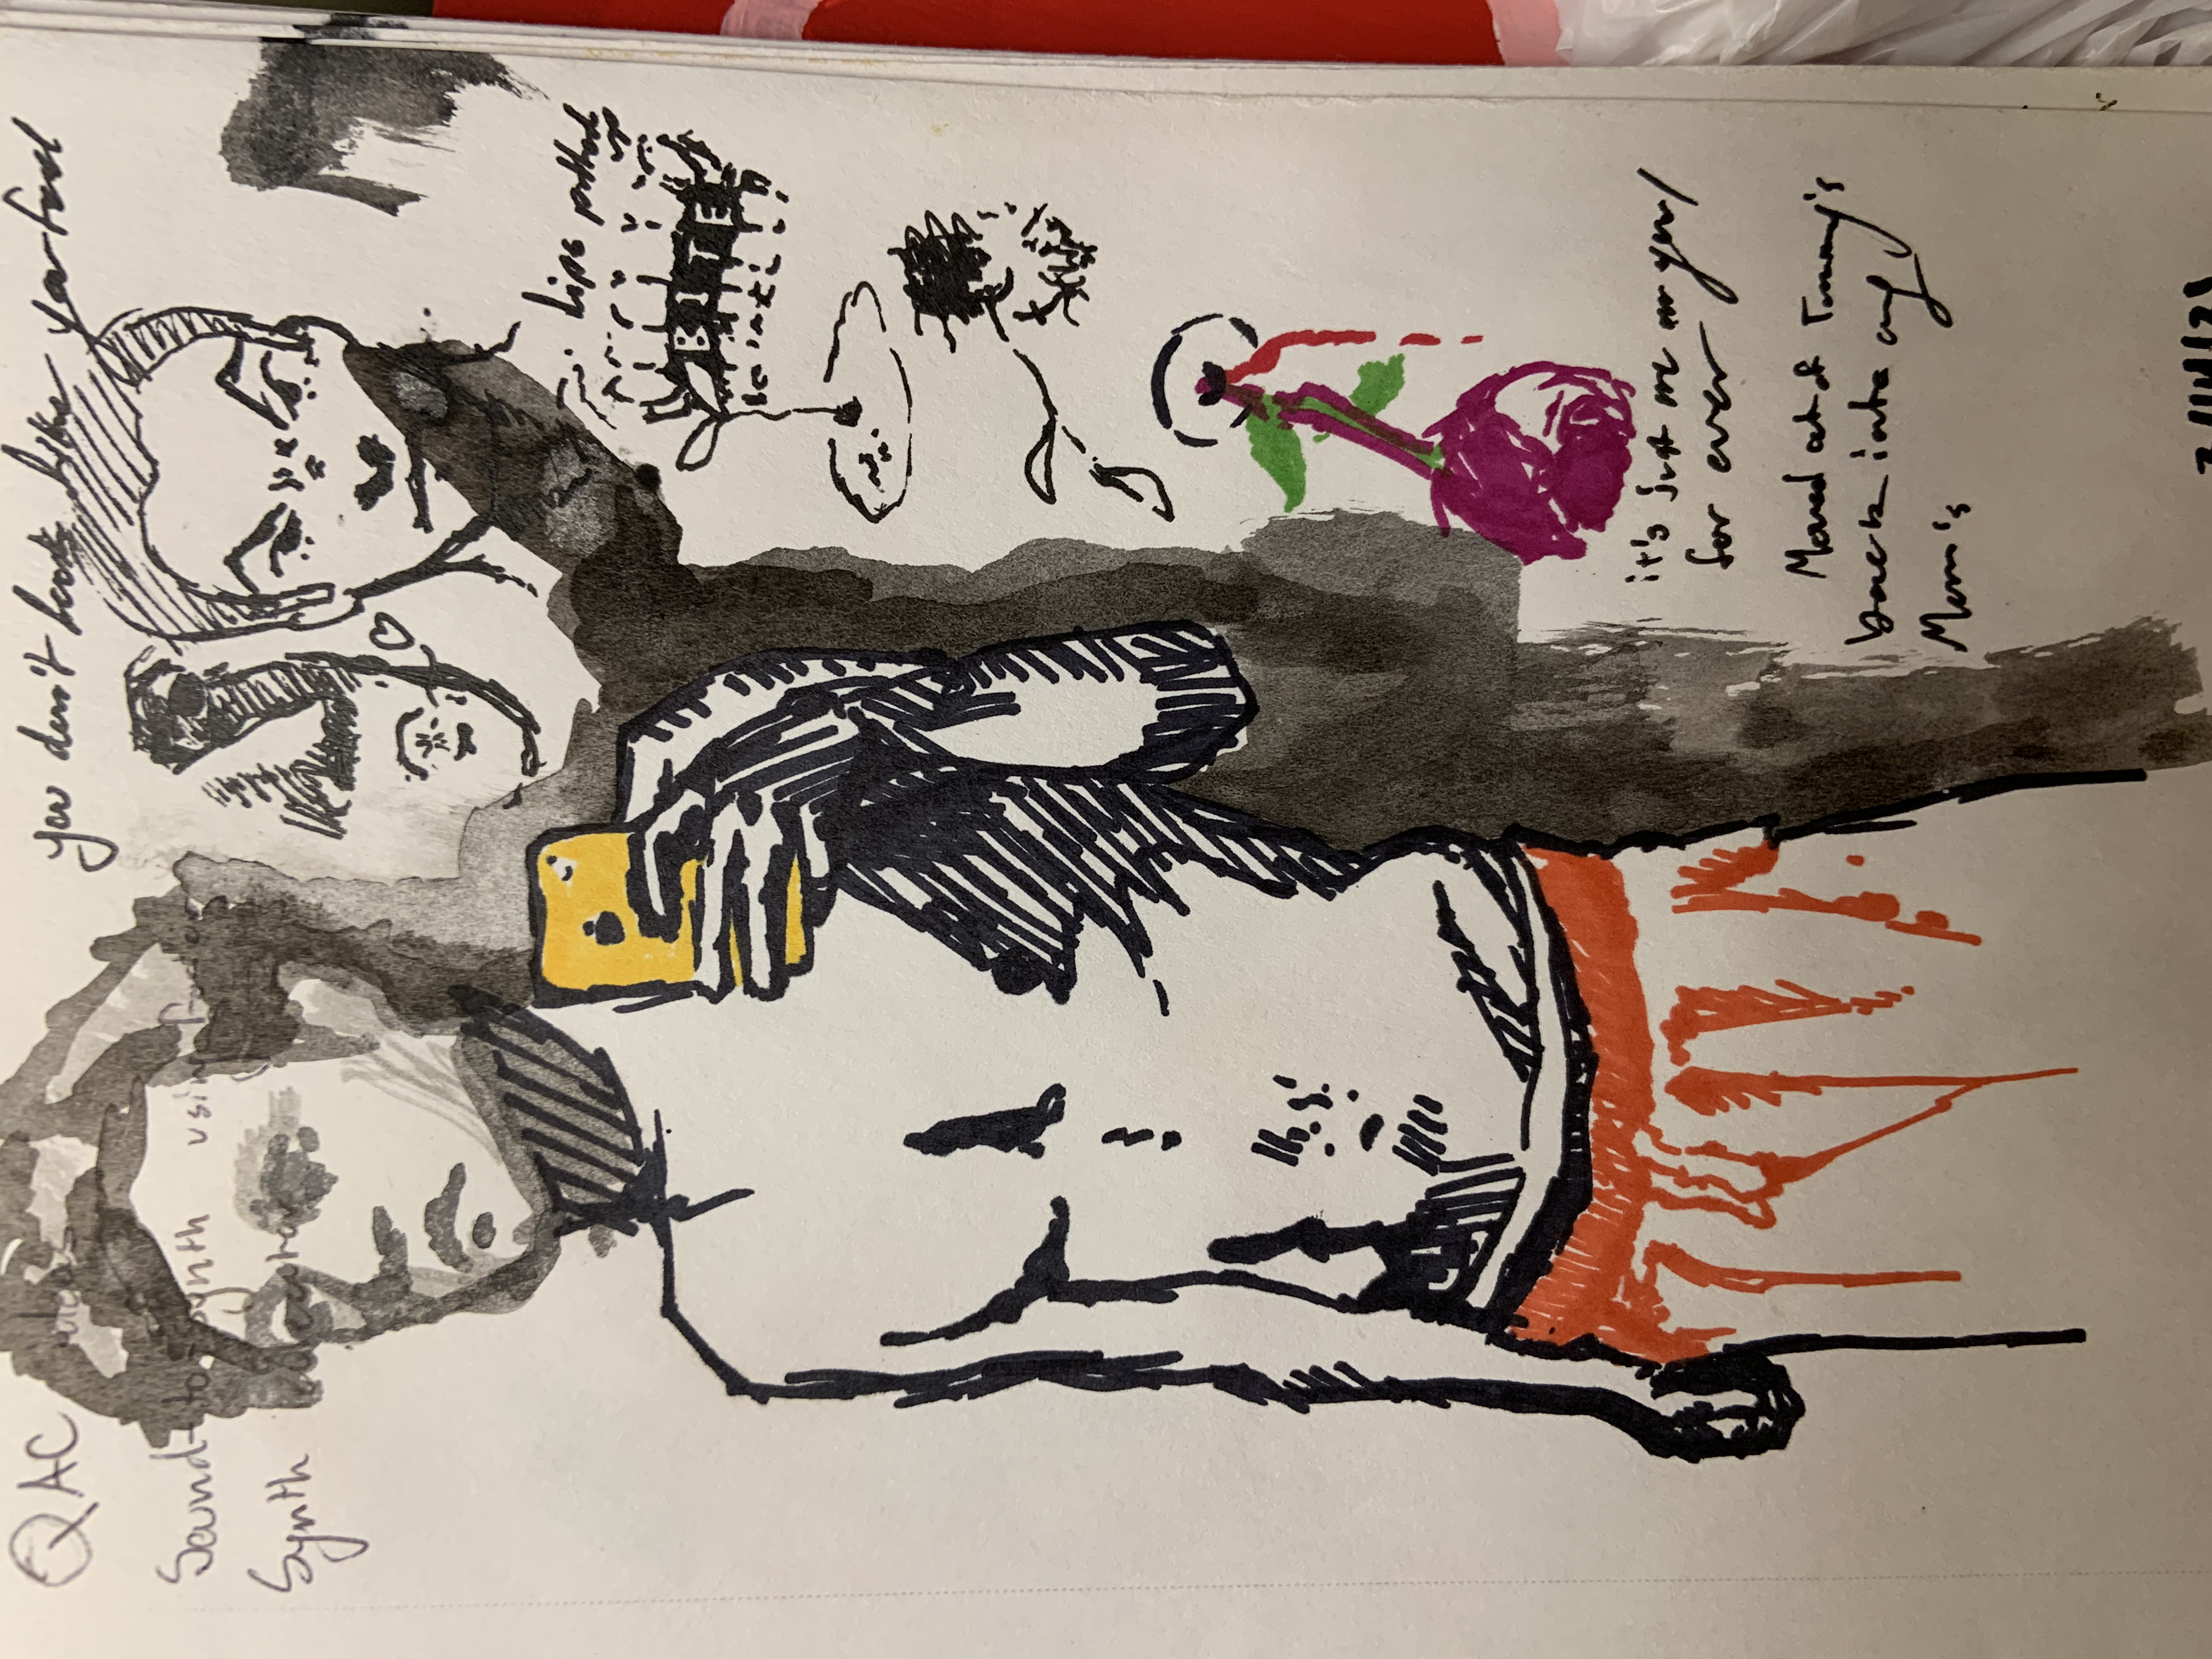 QAC ideas
Sound-to-synth using
Synth
you don't look like you feel
Lips pulled
up
BITE
it's just me on you/
for ever
Moved out of Tommy's
back into my
Mom's